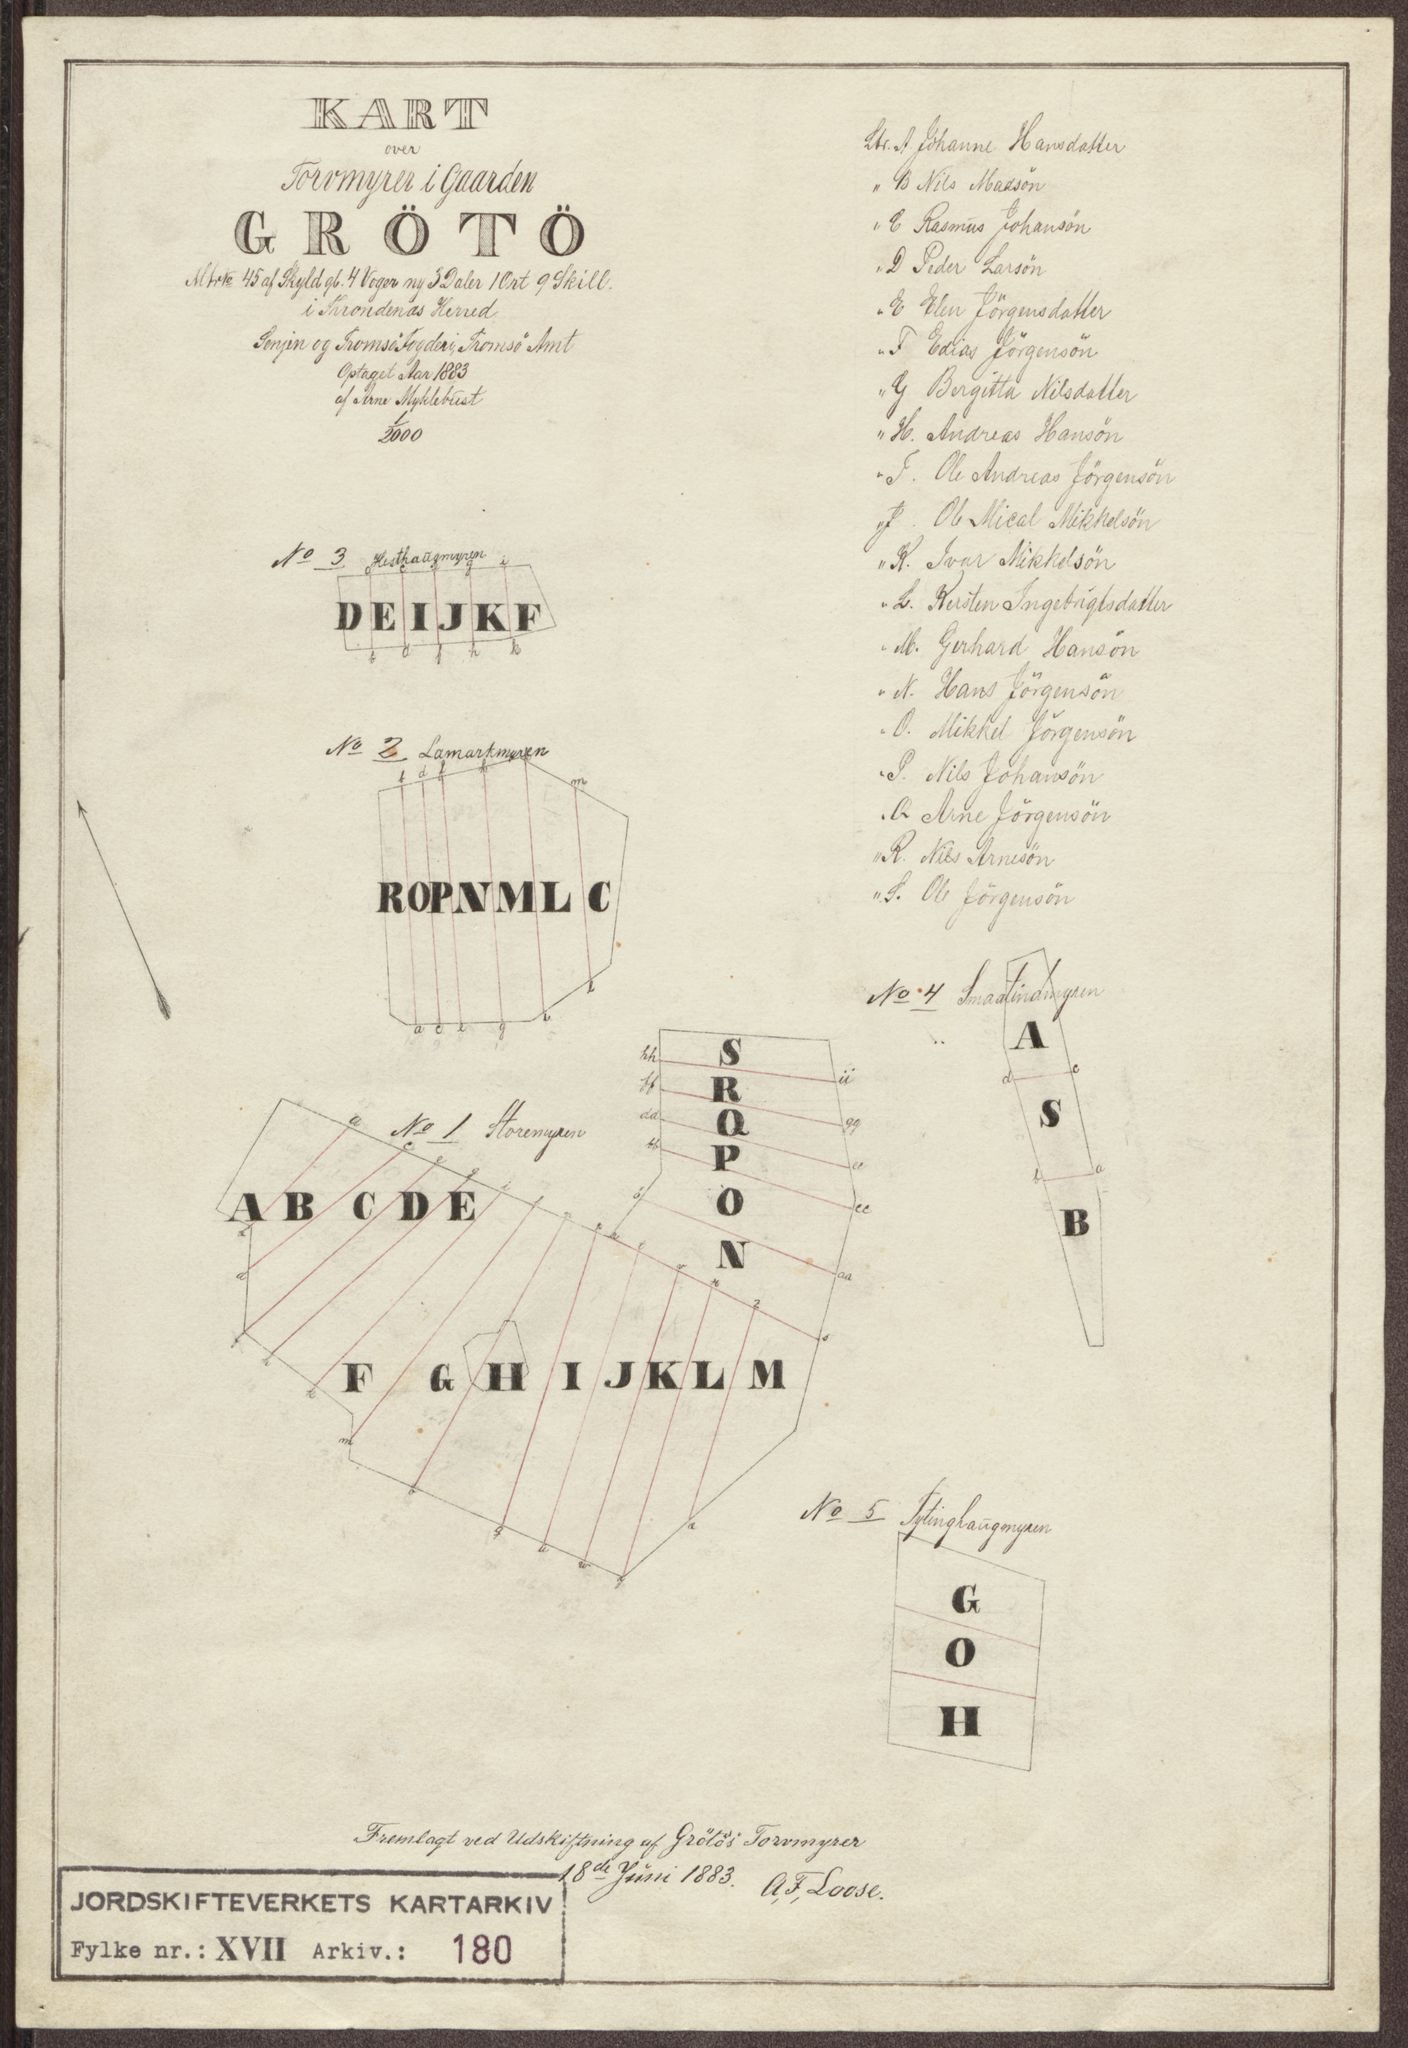 KART
over
Torvmyrer i Gaarden
GRÖTÖ
Mtr No 45 af Skyld gl. 4 Voger ny 3 Daler 1 Ort 9 Skill.
i Throndenæs Herred
Senjen og Tromsö Fogderi, Tromsö Amt
Optaget Aar 1883
af Arne Myklebust
1/2000
Ltr. A Johanne Hansdatter
" B Nils Madsön
" C Rasmus Johansön
" D Peder Larsön
" E Elen Jörgensdatter
" F Edias Jörgensön
" G Bergitta Nilsdatter
" H. Andreas Hansön
" I. Ole Andreas Jörgensön
" J. Ole Mical Mikkelsön
" K. Ivar Mikkelsön
" L. Kersten Ingebrigtsdatter
" M. Gerhard Hansön
" N. Hans Jörgensön
" O. Mikkel Jörgensön
" P. Nils Johansön
" Q Arne Jörgensön
" R. Nils Arnesön
" S. Ole Jörgensön
No 3 Hesthaugmyren
D E I J K F
b d f h k
No 2 Lamarkmyren
b d f h m
R O P N M L C
a c e g i k
No 4 Smaalindmyren
A
d c
S
b a
B
No 1 Storemyren
A B C D E
F G H I J K L M
hh S ii
ff R gg
dd Q ee
bb P cc
ö O
N aa
No 5 Tytinghaugmyren
G
O
H
Fremlagt ved Udskiftning af Grötös Torvmyrer
18de Juni 1883. A. F. Loose.
JORDSKIFTEVERKETS KARTARKIV
Fylke nr.: XVII Arkiv.: 180